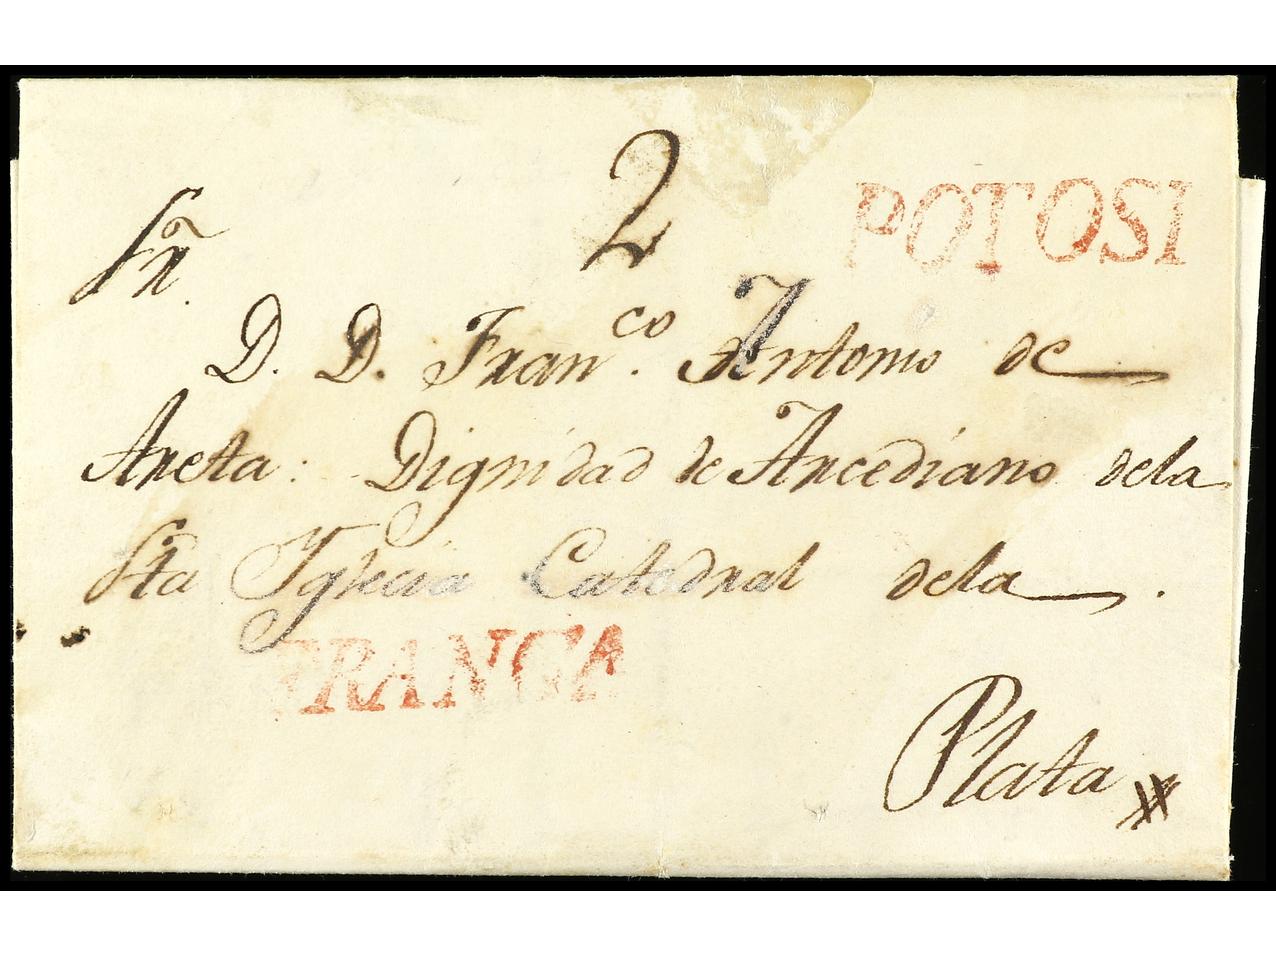 2
POTOSI
Sr̃.
D. D. Fran.co Antonio de
Areta: Dignidad de Arcediano dela
Sta Yglecia Catedral dela .
FRANCA
Plata